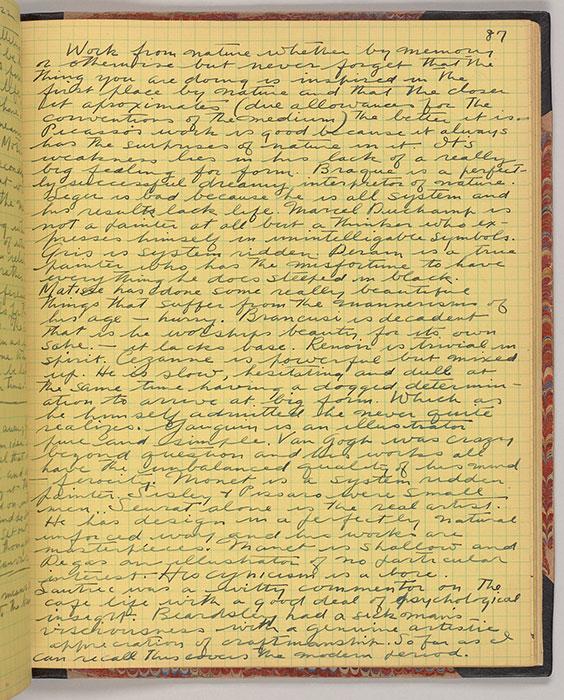 87
Work from nature whether by memory
or otherwise but never forget that the
thing you are doing is inspired in the
first place by nature and that the closer
it aproximates (due allowances for the
conventions of the medium) the better it is.
Picasso's work is good because it always
has the surprises of nature in it. It's
weakness lies in his lack of a really
big feeling for form. Braque is a perfect-
ly successful dreamy interpretor of nature.
Leger is bad because he is all system and
his results lack life. Marcel Duchamp is
not a painter at all but a thinker who ex-
presses himself in unintelligable symbols.
Gris is system ridden. Derain is a true
painter who has the misfortune to have
every thing he does steeped in black.
Matisse has done some really beautiful
things that suffer from the mannerisms of
his age – hurry. Brancusi is decadent
that is he worships beauty for its own
sake. – it lacks base. Renoir is trivial in
spirit. Cezanne is powerful but mixed
up. He is slow, hesitating and dull at
the same time having a dogged determin-
ation to arrive at big form. Which as
he himself admitted he never quite
realizes. Gauguin is an illustrator
pure and simple. Van Gogh was crazy
beyond question and his works all
have the unbalanced quality of his mind
– ferocity. Monet is a system ridden
painter. Sisley & Pissaro were small
men. Seurat alone is the real artist.
He has design in a perfectly natural
unforced way and his work are
masterpieces. Manet is shallow and
Degas an illustrator of no particular
interest. His cynicism is a bore.
Lautrec was a witty commentor on the
cafe life with a good deal of psychological
insight. Beardsley had a sick man's
visciousness with a genuine artistic
appreciation of craftmanship. So far as I
can recall this covers the modern period.